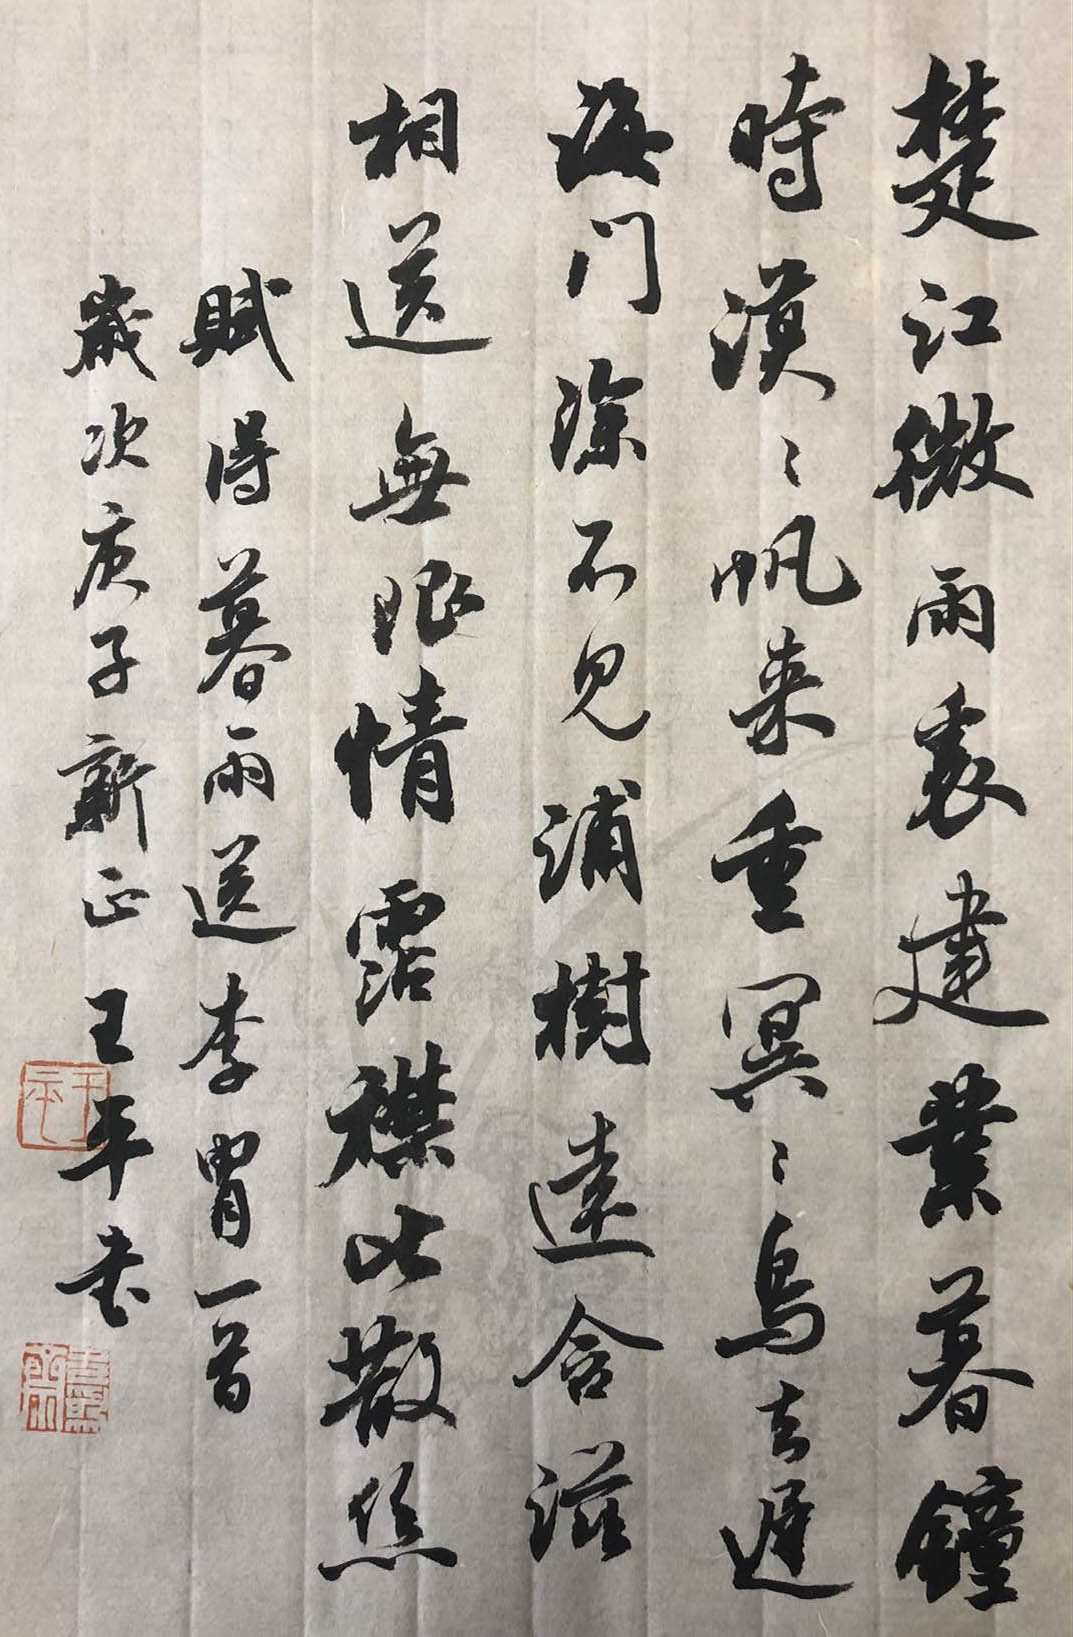 楚江微雨裏建業暮鐘
時漠〻帆来重冥〻鳥去遲
海門深不見浦樹遠含滋
相送無限情霑襟比散絲
賦得暮雨送李胄一首
歲次庚子新正王平書
王平